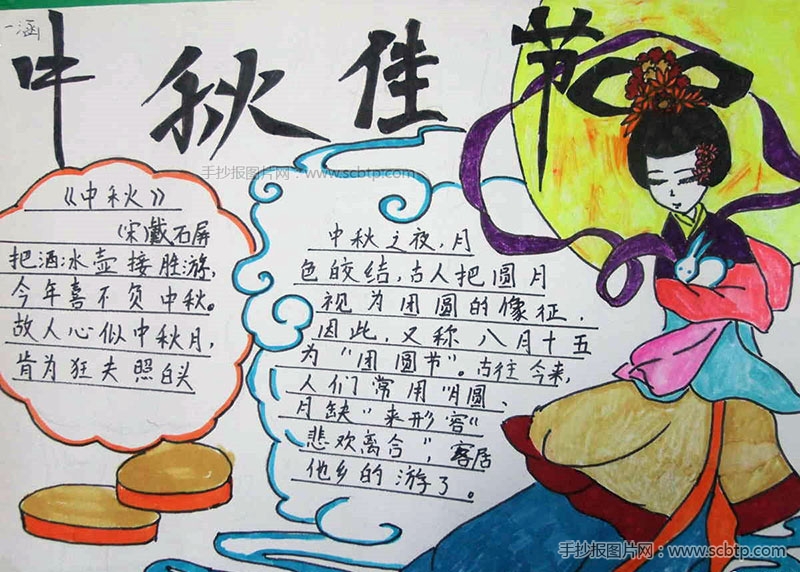 一涵
中秋佳节
手抄报图片网:www.scbtp.com
《中秋》
(宋)戴石屏
把酒冰壶接胜游,
今年喜不负中秋。
故人心似中秋月,
肯为狂夫照白头
中秋之夜,月
色皎结,古人把圆月
视为团圆的像征,
因此,又称八月十五
为"团圆节"。古往今来,
人们常用"月圆、
月缺"来形容"
悲欢离合",客居
他乡的游了。
手抄报图片网:www.scbtp.com